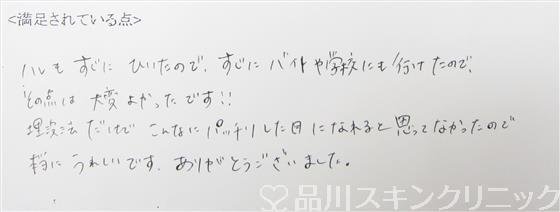 <満足されている点>
ハレも すぐに ひいたので、すぐに バイトや学校にも 行けたので、
その点は 大変 よかったです!!
埋没法 だけで こんなに パッチリした目 になれると 思ってなかったので
本当に うれしいです。ありがとうございました。
品川スキンクリニック